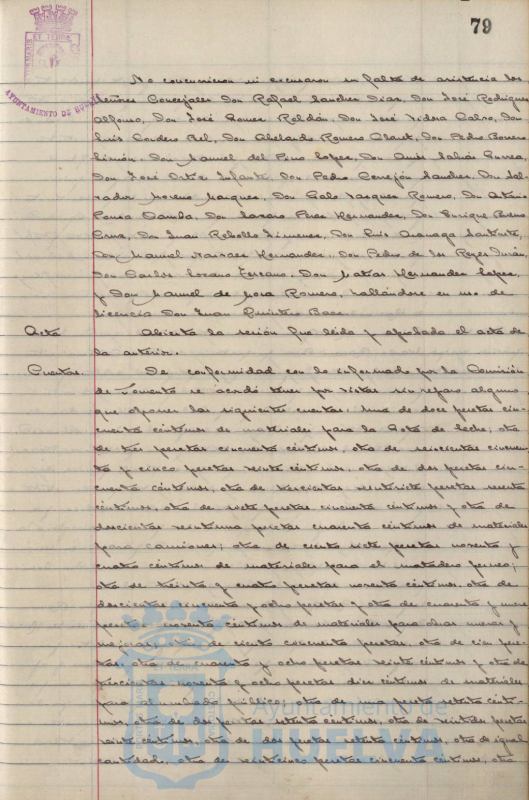 79
AYUNTAMIENTO DE HUELVA
No concurrieron ni excusaron su falta de asistencia los
señores Concejales Don Rafael Sanchez Diaz, Don José Rodriguez
Alfonso, Don José Gomez Roldán, Don José Isidro Calvo, Don
Luis Cordero Bel, Don Abelardo Romero Claret, Don Pedro Borrero
Limón, Don Manuel del Pino Lopez, Don Luis Gurrea,
Don José Ortiz Infante, Don Pedro Cerrejón Sanchez, Don Sal-
vador Moreno Marquez, Don Galo Vazquez Romero, Don
Ponsa Don Perez Hernandez, Don Enrique Bueno
Cruz, Don Juan Rebollo Jimenez, Don Luis
Don Manuel Narvaez Hernandez, Don Pedro de los Reyes
Don Carlos Lozano, Don Matias Hernandez Lopez,
y Don Manuel de Mora Romero, hallándose en uso de
licencia Don Juan Quintero Baez.
Acta Abierta la sesión fue leida y aprobada el acta de
la anterior.
Cuentas. De conformidad con lo informado por la Comisión
de Fomento se acordó tener por vistas sin reparo alguno
que oponer las siguientes cuentas: una de doce pesetas cin-
cuenta céntimos de materiales para la Gota de leche; otra
de tres pesetas cincuenta céntimos, otra de seiscientas cincuen-
ta y cinco pesetas veinte céntimos, otra de dos pesetas cin-
cuenta céntimos, otra de trescientas veintisiete pesetas
céntimos, otra de siete pesetas cincuenta céntimos y otra de
doscientas veintiuna pesetas cuarenta céntimos de materiales
para camiones; otra de ciento siete pesetas noventa y
cuatro céntimos de materiales para el matadero;
otra de treinta y cuatro pesetas noventa céntimos, otra de
doscientas cincuenta y ocho pesetas y otra de cuarenta y una
pesetas noventa céntimos de materiales para obras nuevas y
mejoras; otra de ciento cincuenta pesetas, otra de cien pe-
setas, otra de cuarenta y ocho pesetas veinte céntimos y otra de
trescientas noventa y ocho pesetas diez céntimos de materiales
para alumbrado público; otra de una peseta setenta cénti-
mos, otra de dos pesetas setenta céntimos, otra de veintidos pesetas
veinte céntimos, otra de dos pesetas setenta céntimos, otra de igual
cantidad, otra de veinticinco pesetas cincuenta céntimos, otra
Ayuntamiento de
HUELVA